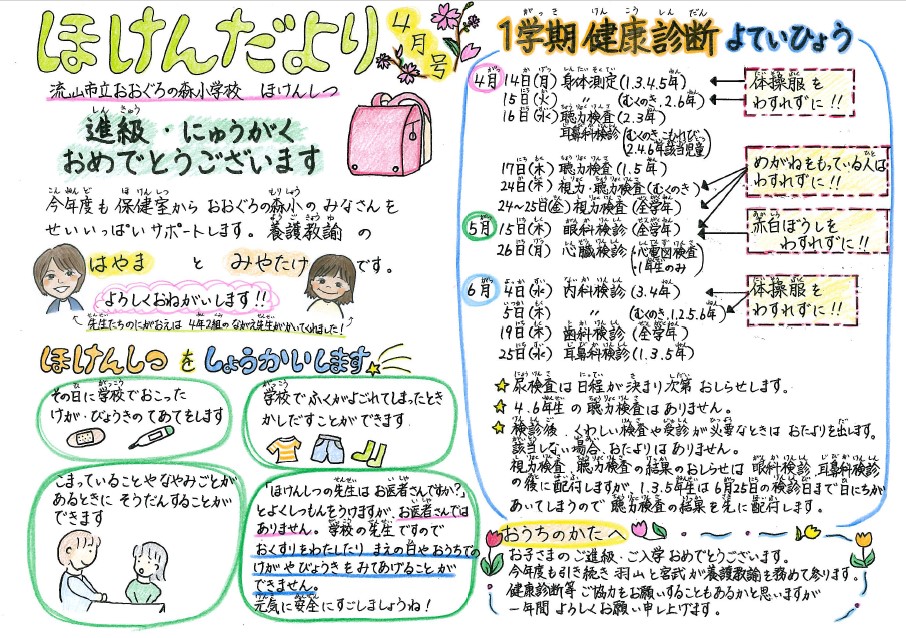 ほけんだより
4月号
流山市立おおぐろの森小学校 ほけんしつ
進級・にゅうがく
おめでとうございます
今年度も保健室からおおぐろの森小のみなさんを
せいいっぱいサポートします。養護教諭の
はやま と みやたけ です。
よろしくおねがいします!!
先生たちのにがおえは4年2組のながえ先生がかいてくれました!
ほけんしつをしょうかいします
その日に学校でおこった
けが・びょうきのてあてをします
学校でふくがよごれてしまったとき
かしだすことができます
こまっていることやなやみごとが
あるときにそうだんすることが
できます
「ほけんしつの先生はお医者さんですか?」
とよくしつもんをうけますが、お医者さんでは
ありません。学校の先生ですので
おくすりをわたしたり まえの日やおうちでの
けがやびょうきをみてあげることが
できません。
元気に安全にすごしましょうね!
1学期健康診断 よていひょう
4月 14日(月) 身体測定(1.3.4.5年)
15日(火) 〃 (むくのき.2.6年)
16日(水) 聴力検査(2.3年)
耳鼻科検診(むくのき.こもれび
2.4.6年該当児童)
17日(木) 聴力検査(1.5年)
24日(木) 視力・聴力検査(むくのき)
24〜25日(金) 視力検査(全学年)
5月 15日(木) 眼科検診(全学年)
26日(月) 心臓検診(・心電図検査
・1年生のみ)
6月 4日(水) 内科検診(3.4年)
5日(木) 〃 (むくのき.1.2.5.6年)
19日(木) 歯科検診(全学年)
25日(水) 耳鼻科検診(1.3.5年)
体操服を
わすれずに!!
めがねをもっている人は
わすれずに!!
赤白ぼうしを
わすれずに!!
体操服を
わすれずに!!
☆尿検査は日程が決まり次第おしらせします。
☆4.6年生の聴力検査はありません。
☆検診後、くわしい検査や受診が必要なときはおたよりを出します。
該当しない場合、おたよりはありません。
視力検査、聴力検査の結果のおしらせは眼科検診、耳鼻科検診
の後に配付しますが、1.3.5年生は6月25日の検診日まで日にちが
あいてしまうので聴力検査の結果を先に配付します。
おうちのかたへ
お子さまのご進級・ご入学おめでとうございます。
今年度も引き続き羽山と宮武が養護教諭を務めて参ります。
健康診断等ご協力をお願いすることもあるかと思いますが
一年間よろしくお願い申し上げます。